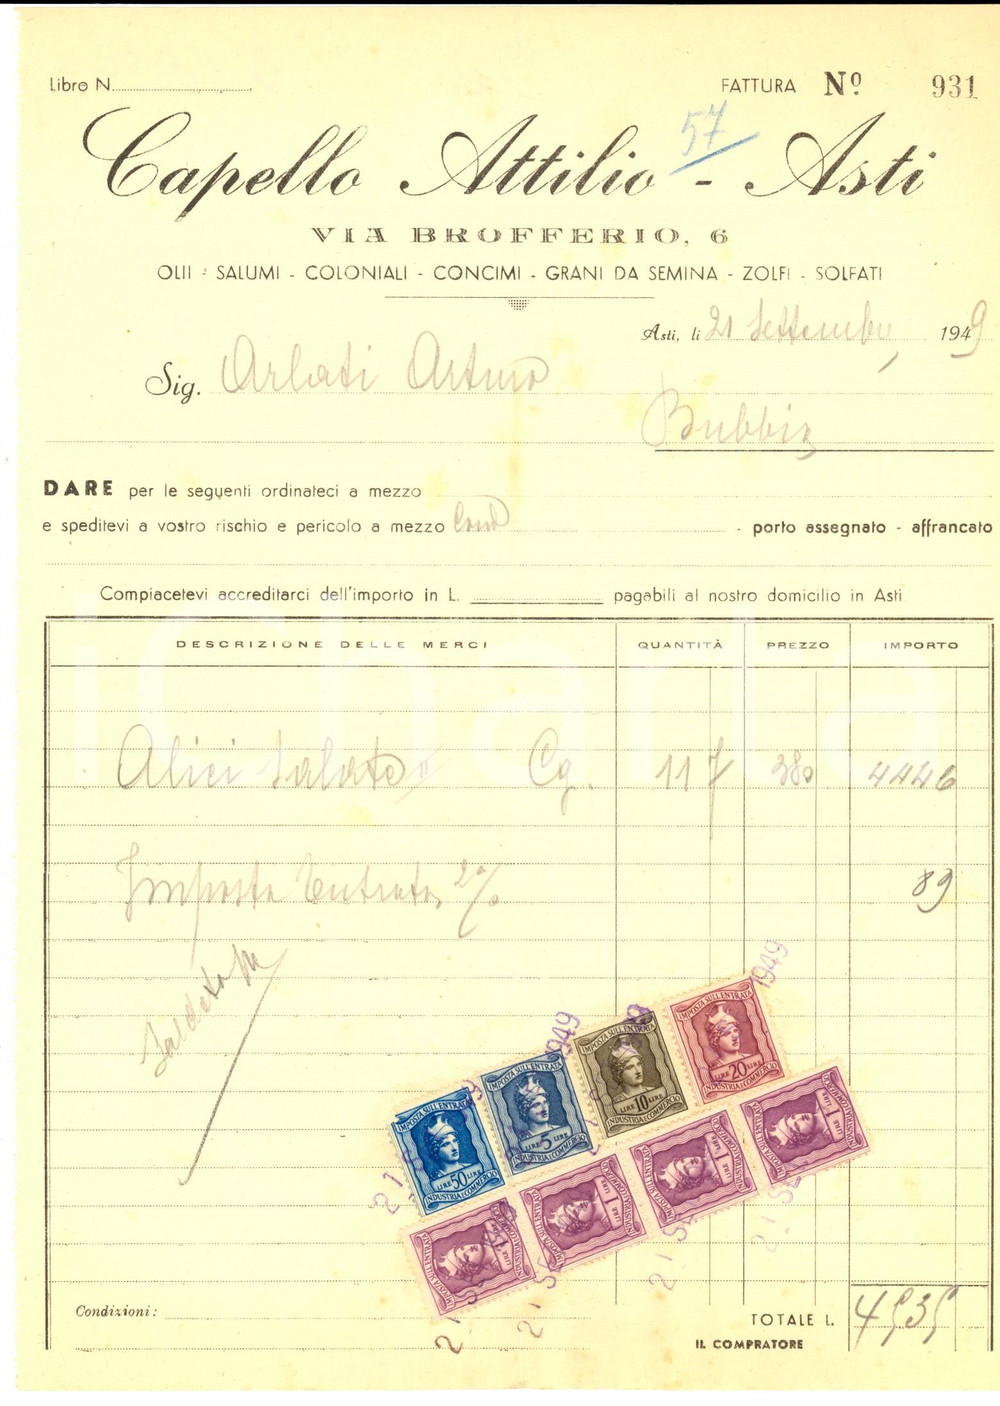 Libro N.
FATTURA Nº 931
57
Capello Attilio - Asti
VIA BROFFERIO, 6
OLII - SALUMI - COLONIALI - CONCIMI - GRANI DA SEMINA - ZOLFI - SOLFATI
Asti, li 21 Settembre 1949
Sig. Arlati Arturo
Bubbio
DARE per le seguenti ordinateci a mezzo
e speditevi a vostro rischio e pericolo a mezzo - porto assegnato - affrancato
Compiacetevi accreditarci dell'importo in L. pagabili al nostro domicilio in Asti
DESCRIZIONE DELLE MERCI QUANTITÀ PREZZO IMPORTO
Alici Salate Cg. 11 7 380 4446
Imposta Entrata 2% 89
1949
IMPOSTA SULL'ENTRATA LIRE 20 LIRE INDUSTRIA E COMMERCIO
IMPOSTA SULL'ENTRATA LIRE 10 LIRE INDUSTRIA E COMMERCIO
1949
IMPOSTA SULL'ENTRATA LIRE 5 LIRE INDUSTRIA E COMMERCIO
IMPOSTA SULL'ENTRATA LIRE 50 LIRE INDUSTRIA E COMMERCIO
IMPOSTA SULL'ENTRATA LIRE 1 INDUSTRIA E COMMERCIO
IMPOSTA SULL'ENTRATA LIRE 1 INDUSTRIA E COMMERCIO
IMPOSTA SULL'ENTRATA LIRE 1 INDUSTRIA E COMMERCIO
IMPOSTA SULL'ENTRATA LIRE 1 INDUSTRIA E COMMERCIO
Condizioni:
TOTALE L. 4535
IL COMPRATORE